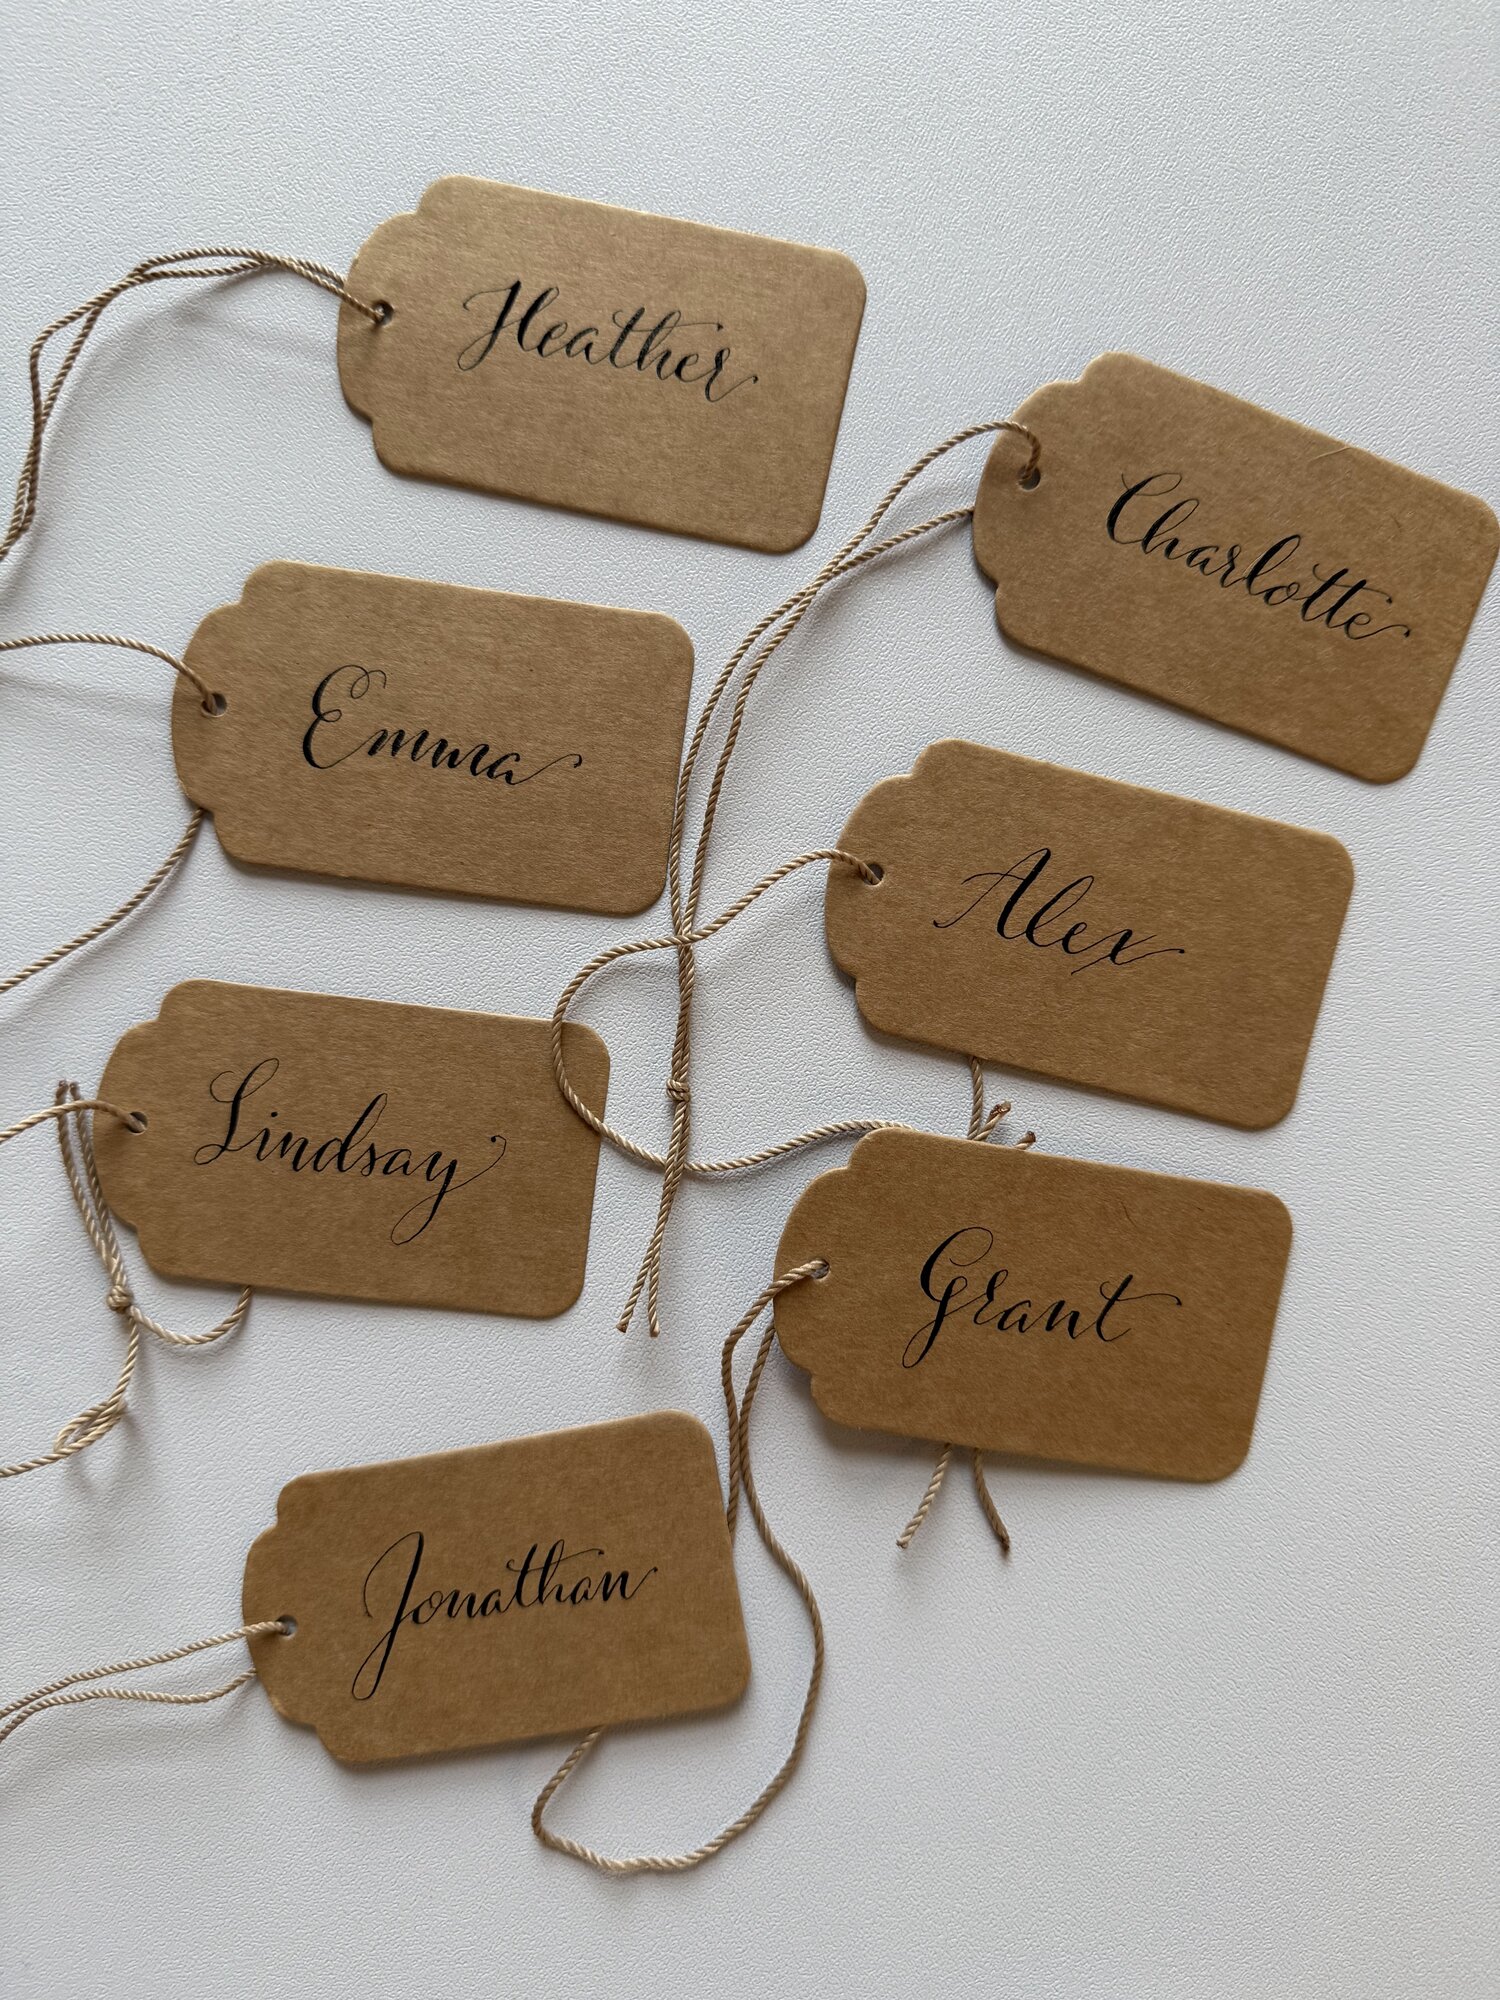 Heather
Charlotte
Emma
Alex
Lindsay
Grant
Jonathan